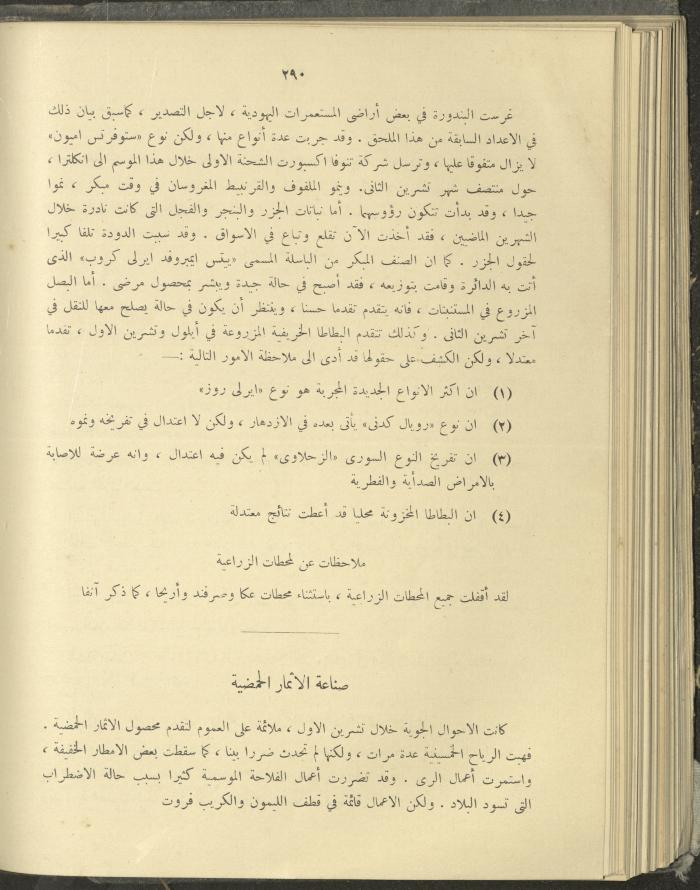 ٢٩٠
غرست البندورة في بعض أراضى المستعمرات اليهودية ، لاجل التصدير ، كماسبق بيان ذلك
في الاعداد السابقة من هذا الملحق . وقد جربت عدة أنواع منها ، ولكن نوع «ستوفرتس اميون»
لا يزال متفوقا عليها ، وترسل شركة تنوفا اكسبورت الشحنة الاولى خلال هذا الموسم الى انكلترا ،
حول منتصف شهر تشرين الثانى. وينمو الملفوف والقرنبيط المغروسان في وقت مبكر ، نموا
جيدا ، وقد بدأت تتكون رؤوسهما . أما نباتات الجزر والبنجر والفجل التى كانت نادرة خلال
الشهرين الماضيين ، فقد أخذت الآن تقلع وتباع في الاسواق . وقد سببت الدودة تلفا كبيرا
لحقول الجزر . كما ان الصنف المبكر من الباسلة المسمى «بيتس ايمبروفد ايرلى كروب» الذى
أتت به الدائرة وقامت بتوزيعه ، فقد أصبح في حالة جيدة ويبشر بمحصول مرضى . أما البصل
المزروع في المستنبتات ، فانه يتقدم تقدما حسنا ، وينتظر أن يكون في حالة يصلح معها للنقل في
آخر تشرين الثانى . وكذلك تتقدم البطاطا الخريفية المزروعة في أيلول وتشرين الاول ، تقدما
معتدلا ، ولكن الكشف على حقولها قد أدى الى ملاحظة الامور التالية :—
(١) ان اكثر الانواع الجديدة المجربة هو نوع «ايرلى روز»
(٢) ان نوع «رويال كدنى» يأتى بعده في الازدهار ، ولكن لا اعتدال في تفريخه ونموه
(٣) ان تفريخ النوع السورى «الزحلاوى» لم يكن فيه اعتدال ، وانه عرضة للاصابة
بالامراض الصدأية والفطرية
(٤) ان البطاطا المخزونة محليا قد أعطت نتائج معتدلة
ملاحظات عن لمحطات الزراعية
لقد أقفلت جميع المحطات الزراعية ، باستثناء محطات عكا وصرفند وأريحا ، كما ذكر آنفا
صناعة الاثمار الحمضية
كانت الاحوال الجوية خلال تشرين الاول ، ملائمة على العموم لتقدم محصول الاثمار الحمضية .
فهبت الرياح الخمسينية عدة مرات ، ولكنها لم تحدث ضررا بينا ، كما سقطت بعض الامطار الخفيفة ،
واستمرت أعمال الرى . وقد تضررت أعمال الفلاحة الموسمية كثيرا بسبب حالة الاضطراب
التى تسود البلاد . ولكن الاعمال قائمة في قطف الليمون والكريب فروت